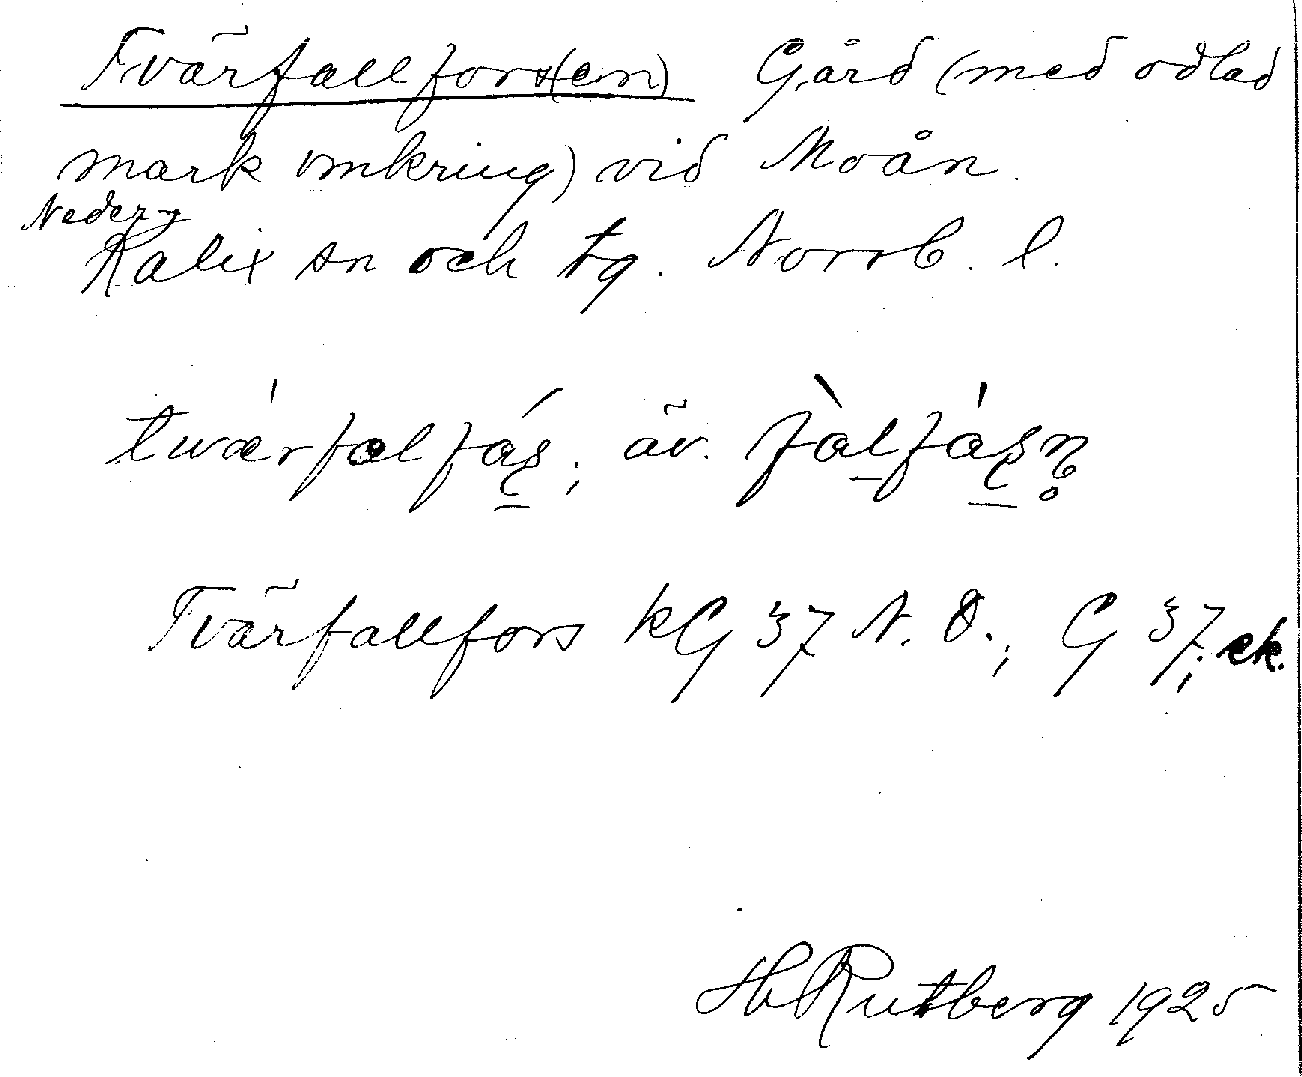 Tvärfallfors(en) Gård (med odlad
mark omkring) vid Moån.
Neder-
Kalix sn och tg. Norrb. l.
twærfalfás̠; äv. fàl̠fás̠n̥
Tvärfallfors kG 37 N. O.; G 37; ek.
H Rutberg 1925